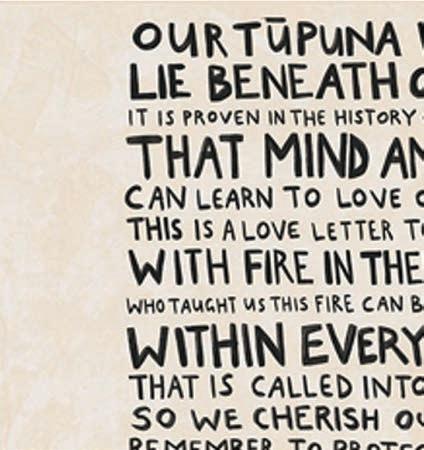 OUR TŪPUNA
LIE BENEATH
IT IS PROVEN IN THE HISTORY
THAT MIND
CAN LEARN TO LOVE
THIS IS A LOVE LETTER
WITH FIRE IN THE
WHO TAUGHT US THIS FIRE CAN
WITHIN EVERY
THAT IS CALLED INTO
SO WE CHERISH
REMEMBER TO